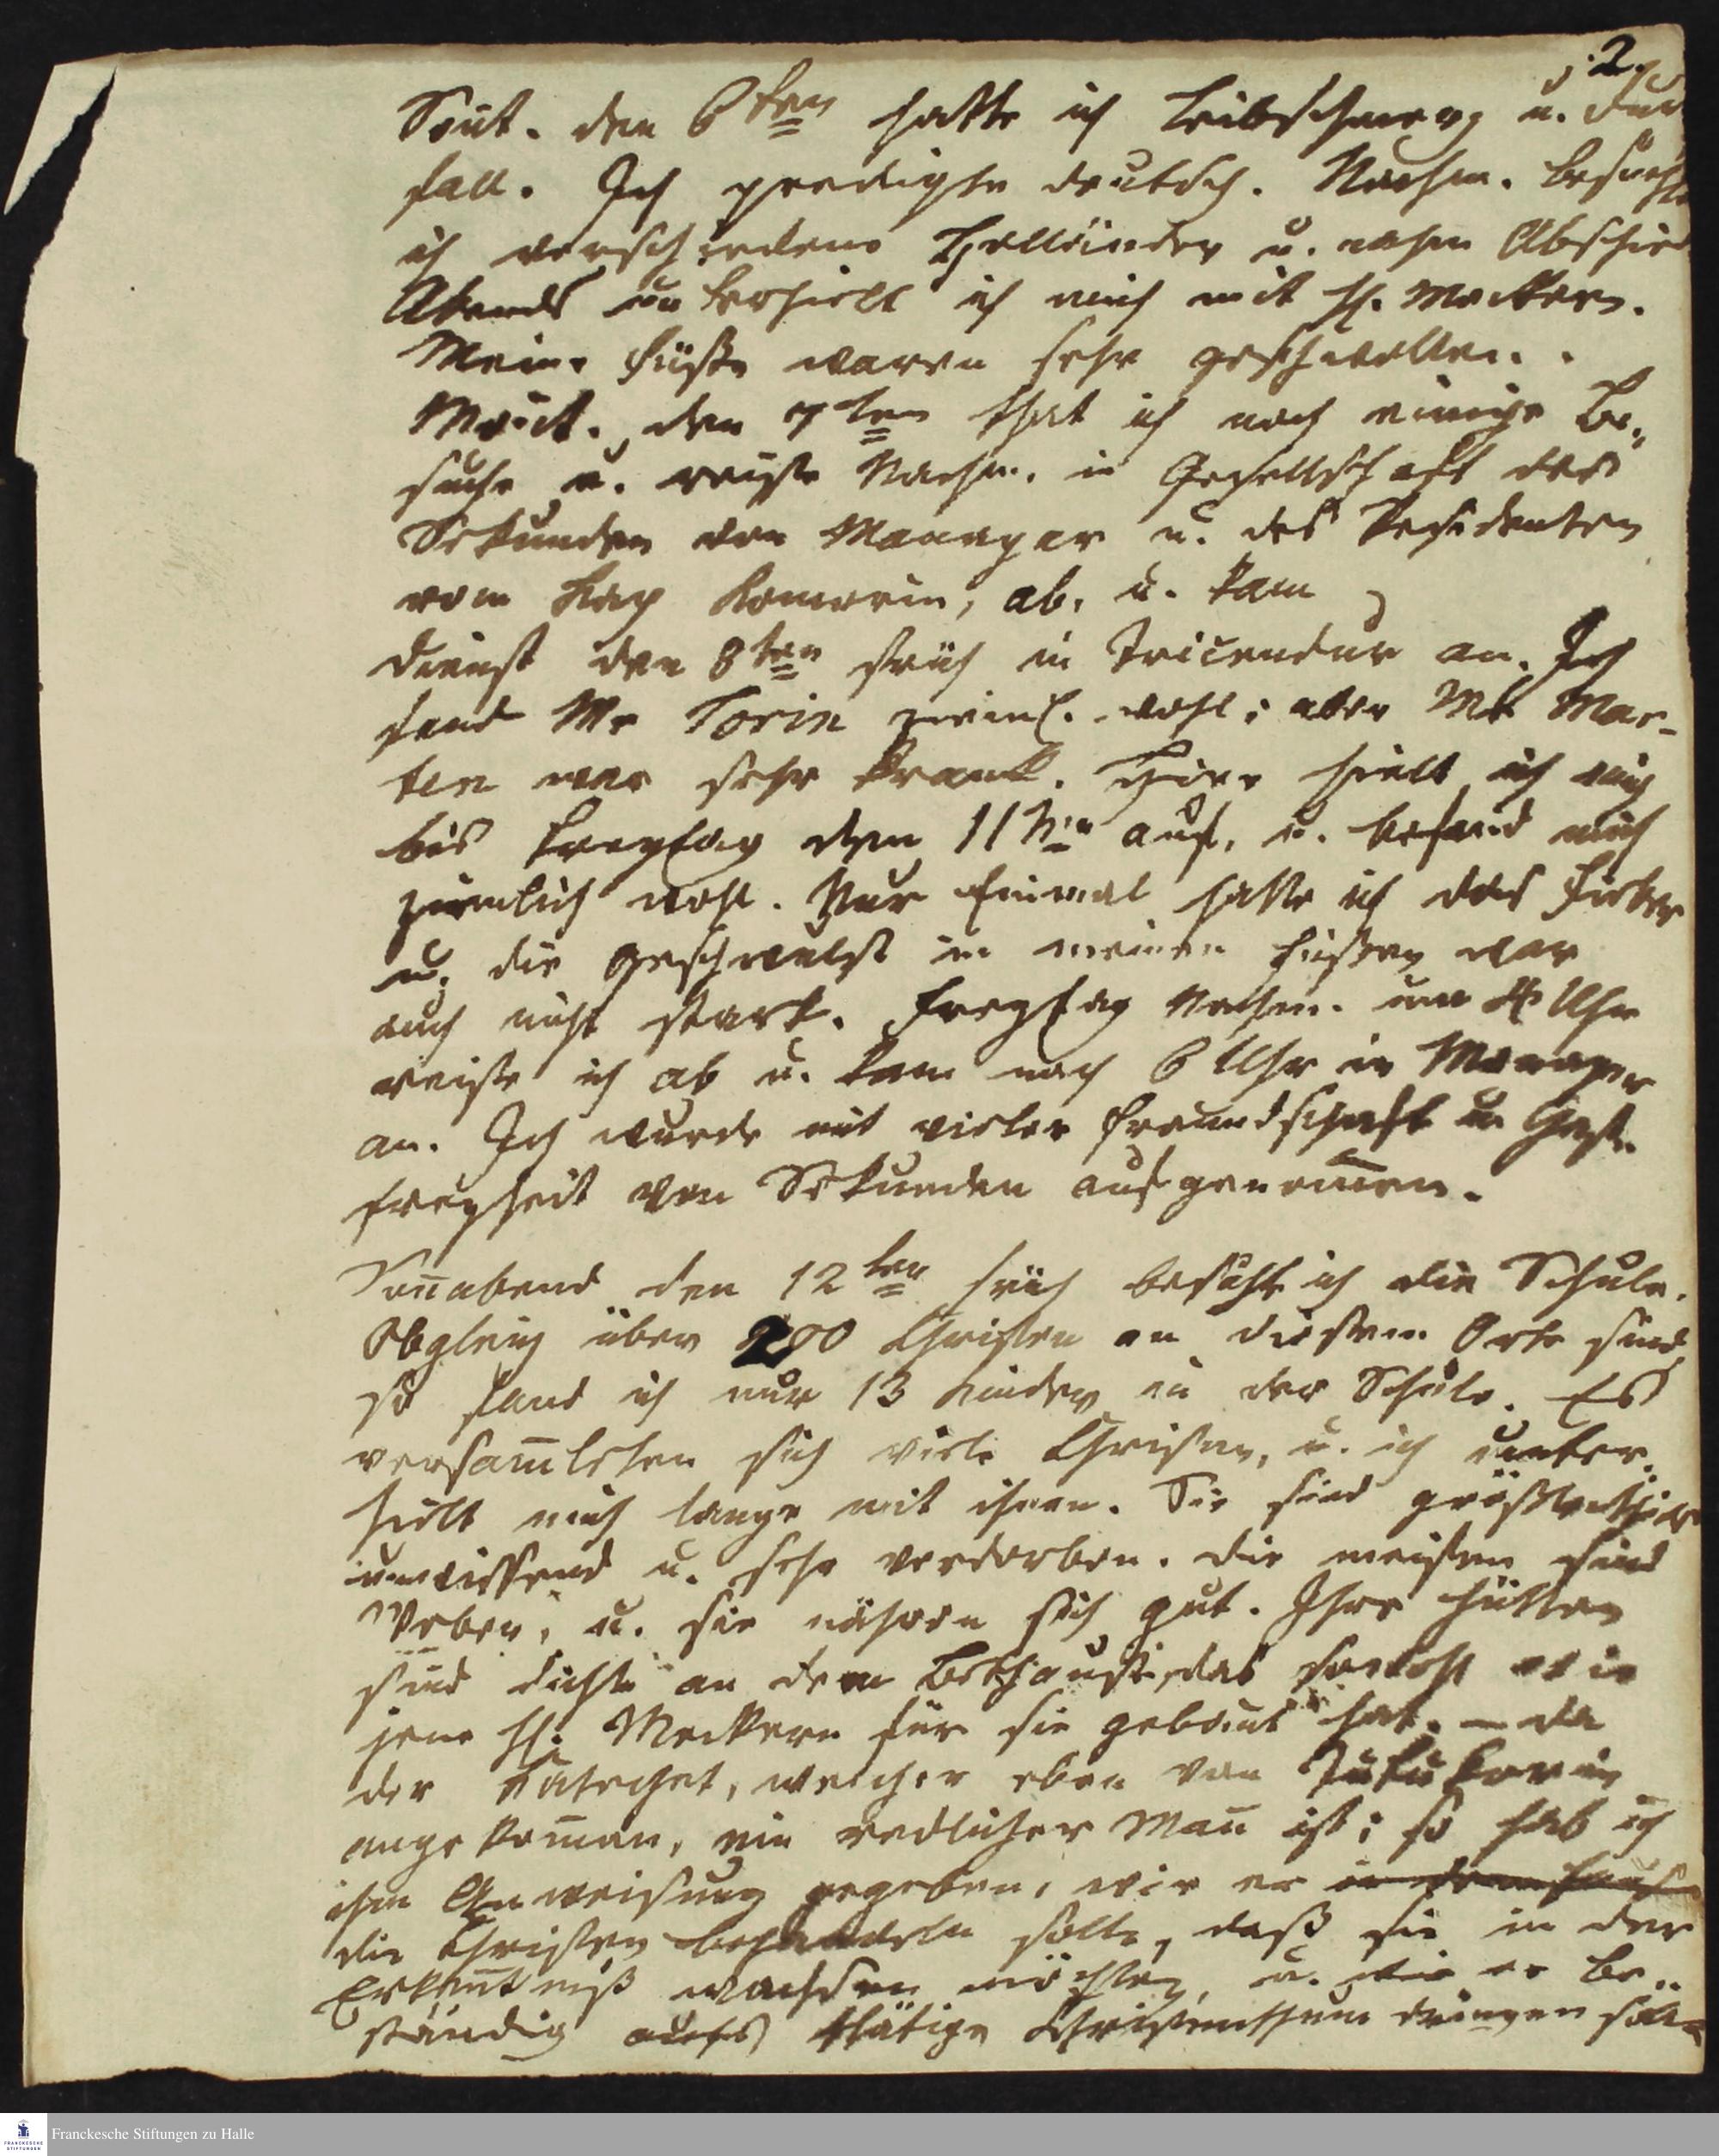 2.
Sont. den 6ten hatte ich Leibschmerz u. Dur
fall. Ich predigte deutsch. Nachm. besuchte
ich verschiedene Holländer u. nahm Abschied
Abends unterhielt ich mich mit H. Meckern.
Meine Füße waren sehr geschwollen.
Mont. den 7ten that ich noch einige Be„
suche u. reiste Nachm. in Gesellschaft des
Sekunden von Manapar u. des Residenten
vom Kap Komorin, ab, u. kam
Dienst den 8ten früh in Tricendur an. Ich
fand Mr Torin ziml. wohl; aber Mr Mar-
ten war sehr krank. Hier hielt ich mich
bis Freytag den 11ten auf, u. befand mich
ziemlich wohl. Nur Einmal hatte ich das Fieber
u. die Geschwulst in meinen Füßen war
auch nicht stark. Freytag Nachm. um 4 Uhr
reiste ich ab u. kam nach 6 Uhr in Manapar
an. Ich wurde mit vieler Freundschaft u Gast„
freyheit von Sekunden aufgenom̅en.
Son̅abend den 12ten früh besucht ich die Schule.
Obgleich über 200 Christen an diesem Orte sind
so fand ich nur 13 Kinder in der Schule. Es
versam̅leten sich viele Christen, u. ich unter„
hielt mich lange mit ihnen. Sie sind größtentheils
unwissend u. sehr verdorben. Die meisten sind
Weber, u. sie nähren sich gut. Ihre Hütten
sind dichte an dem Bethause, das sowohl wie
jene H. Meckern für sie gebaut hat. – Da
der Katechet, welcher eben von Tutukorin
angekom̅en, ein redlicher Man̅ ist; so hab ich
ihm Anweisung gegeben, wie er in dem Hause
die Christen behandeln solle, daß sie in der
Erken̅tniß wachsen möchten, u. wie er be„
ständig aufs thätige Christenthum dringen solle
Franckesche Stiftungen zu Halle